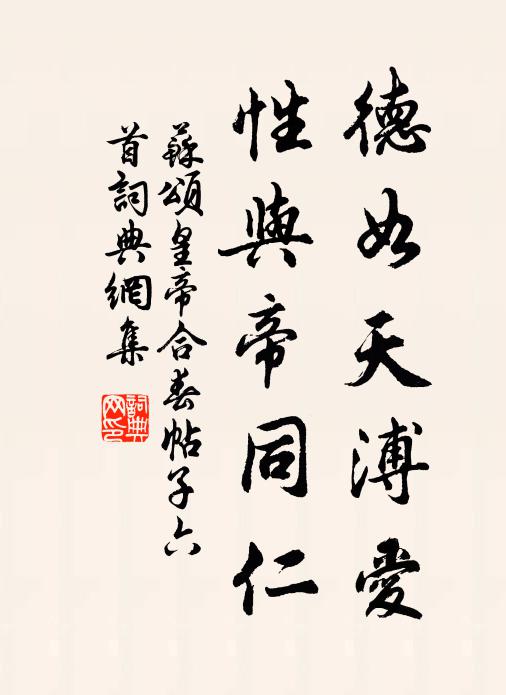 德如天溥愛
性與帝同仁
蘇頌皇帝合春帖子六
首詞典網集
詞典
网印